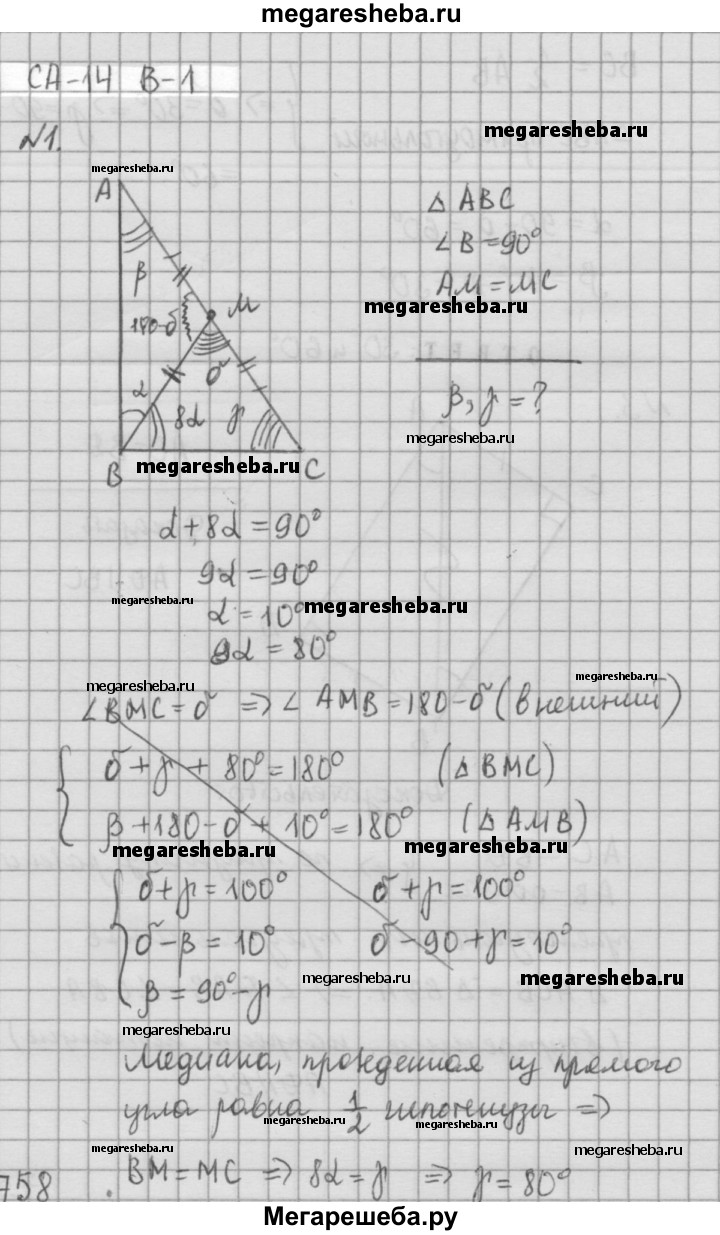 megaresheba.ru
СА-14 В-1
№1.
megaresheba.ru
megaresheba.ru
A
β
180-σ
M
σ
α
8α
γ
B
C
Δ ABC
∠B=90°
AM=MC
megaresheba.ru
β, γ = ?
megaresheba.ru
megaresheba.ru
α+8α=90°
9α=90°
megaresheba.ru
α=10°
megaresheba.ru
8α=80°
megaresheba.ru
megaresheba.ru
∠BMC=σ => ∠AMB=180-σ (внешний)
σ+γ+80°=180° (Δ BMC)
β+180-σ+10°=180° (Δ AMB)
megaresheba.ru
megaresheba.ru
σ+γ=100° σ+γ=100°
σ-β=10° σ-90+γ=10°
megaresheba.ru
megaresheba.ru
β=90°-γ
megaresheba.ru
Медиана, проведенная из прямого
угла равна 1/2 гипотенузы =>
megaresheba.ru
megaresheba.ru
megaresheba.ru
megaresheba.ru
758
BM=MC => 8α=γ => γ=80°
Мегарешеба.ру